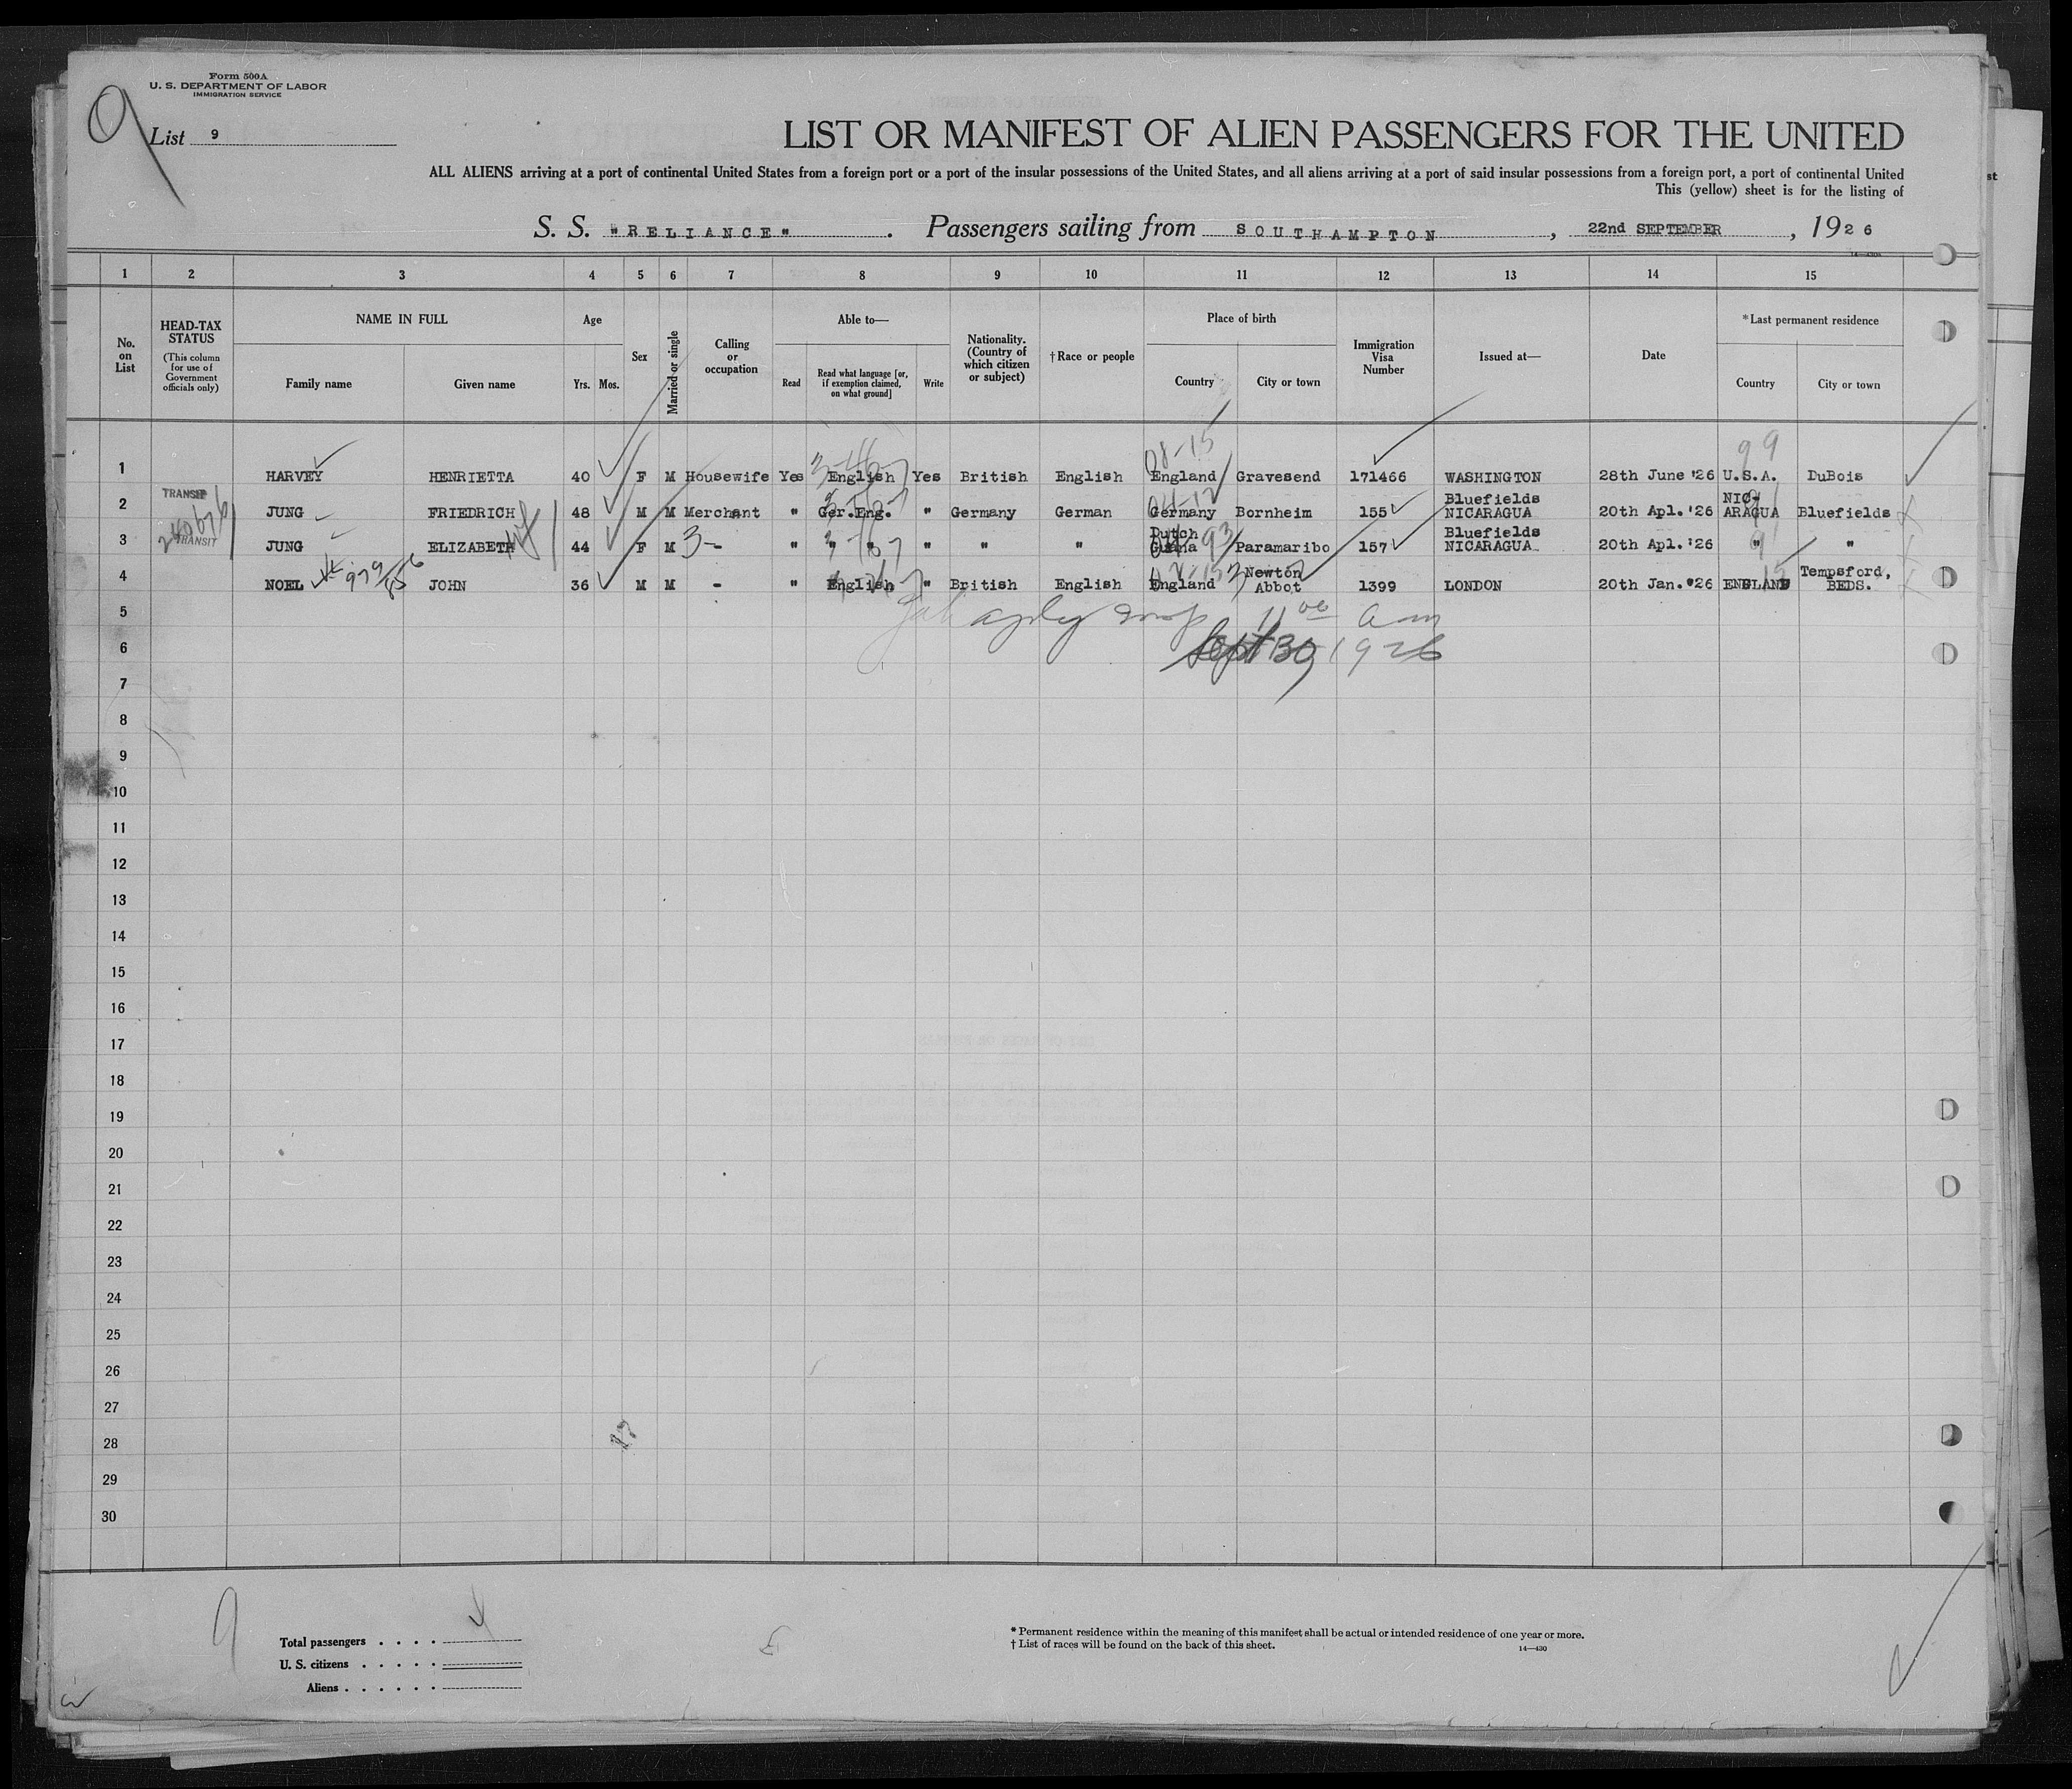 Form 500A
U. S. DEPARTMENT OF LABOR
IMMIGRATION SERVICE
9
List 9
LIST OR MANIFEST OF ALIEN PASSENGERS FOR THE UNITED
ALL ALIENS arriving at a port of continental United States from a foreign port or a port of the insular possessions of the United States, and all aliens arriving at a port of said insular possessions from a foreign port, a port of continental United
This (yellow) sheet is for the listing of
st
S. S. "RELIANCE". Passengers sailing from SOUTHAMPTON, 22nd SEPTEMBER, 1926
1 2 3 4 5 6 7 8 9 10 11 12 13 14 15
No. on List
HEAD-TAX STATUS
(This column for use of Government officials only)
NAME IN FULL
Family name
Given name
Age
Yrs. Mos.
Sex
Married or single
Calling or occupation
Able to—
Read
Read what language [or, if exemption claimed, on what ground]
Write
Nationality. (Country of which citizen or subject)
†Race or people
Place of birth
Country
City or town
Immigration Visa Number
Issued at—
Date
*Last permanent residence
Country
City or town
99
08-15
1 HARVEY HENRIETTA 40 F M Housewife Yes English Yes British English England Gravesend 171466 WASHINGTON 28th June '26 U.S.A. DuBois
TRANSIT
2 JUNG FRIEDRICH 48 M M Merchant " Ger.Eng. " Germany German Germany Bornheim 155 Bluefields NICARAGUA 20th Apl. '26 NICARAGUA Bluefields
TRANSIT
3 JUNG ELIZABETH 44 F M - " " " " " " Dutch Guiana Paramaribo 157 Bluefields NICARAGUA 20th Apl. '26 " "
4 NOEL JOHN 36 M M - " English " British English England Newton Abbot 1399 LONDON 20th Jan. '26 ENGLAND Tempsford, BEDS.
5 11 00 am
6 Sept 30 1926
7
8
9
10
11
12
13
14
15
16
17
18
19
20
21
22
23
24
25
26
27
28
29
30
9
Total passengers . . . .
U. S. citizens . . . . .
Aliens . . . . . .
* Permanent residence within the meaning of this manifest shall be actual or intended residence of one year or more.
† List of races will be found on the back of this sheet.
14—430